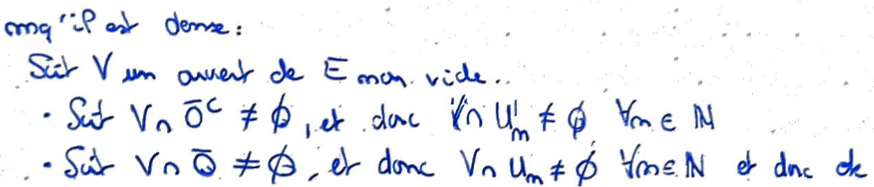 mq 'il est dense :
Soit V un ouvert de E non vide.
• Soit V ∩ Ō^c ≠ ∅, et donc V ∩ U'_n ≠ ∅ ∀n ∈ ℕ
• Soit V ∩ Ō ≠ ∅, et donc V ∩ U_n ≠ ∅ ∀n ∈ ℕ et donc ok